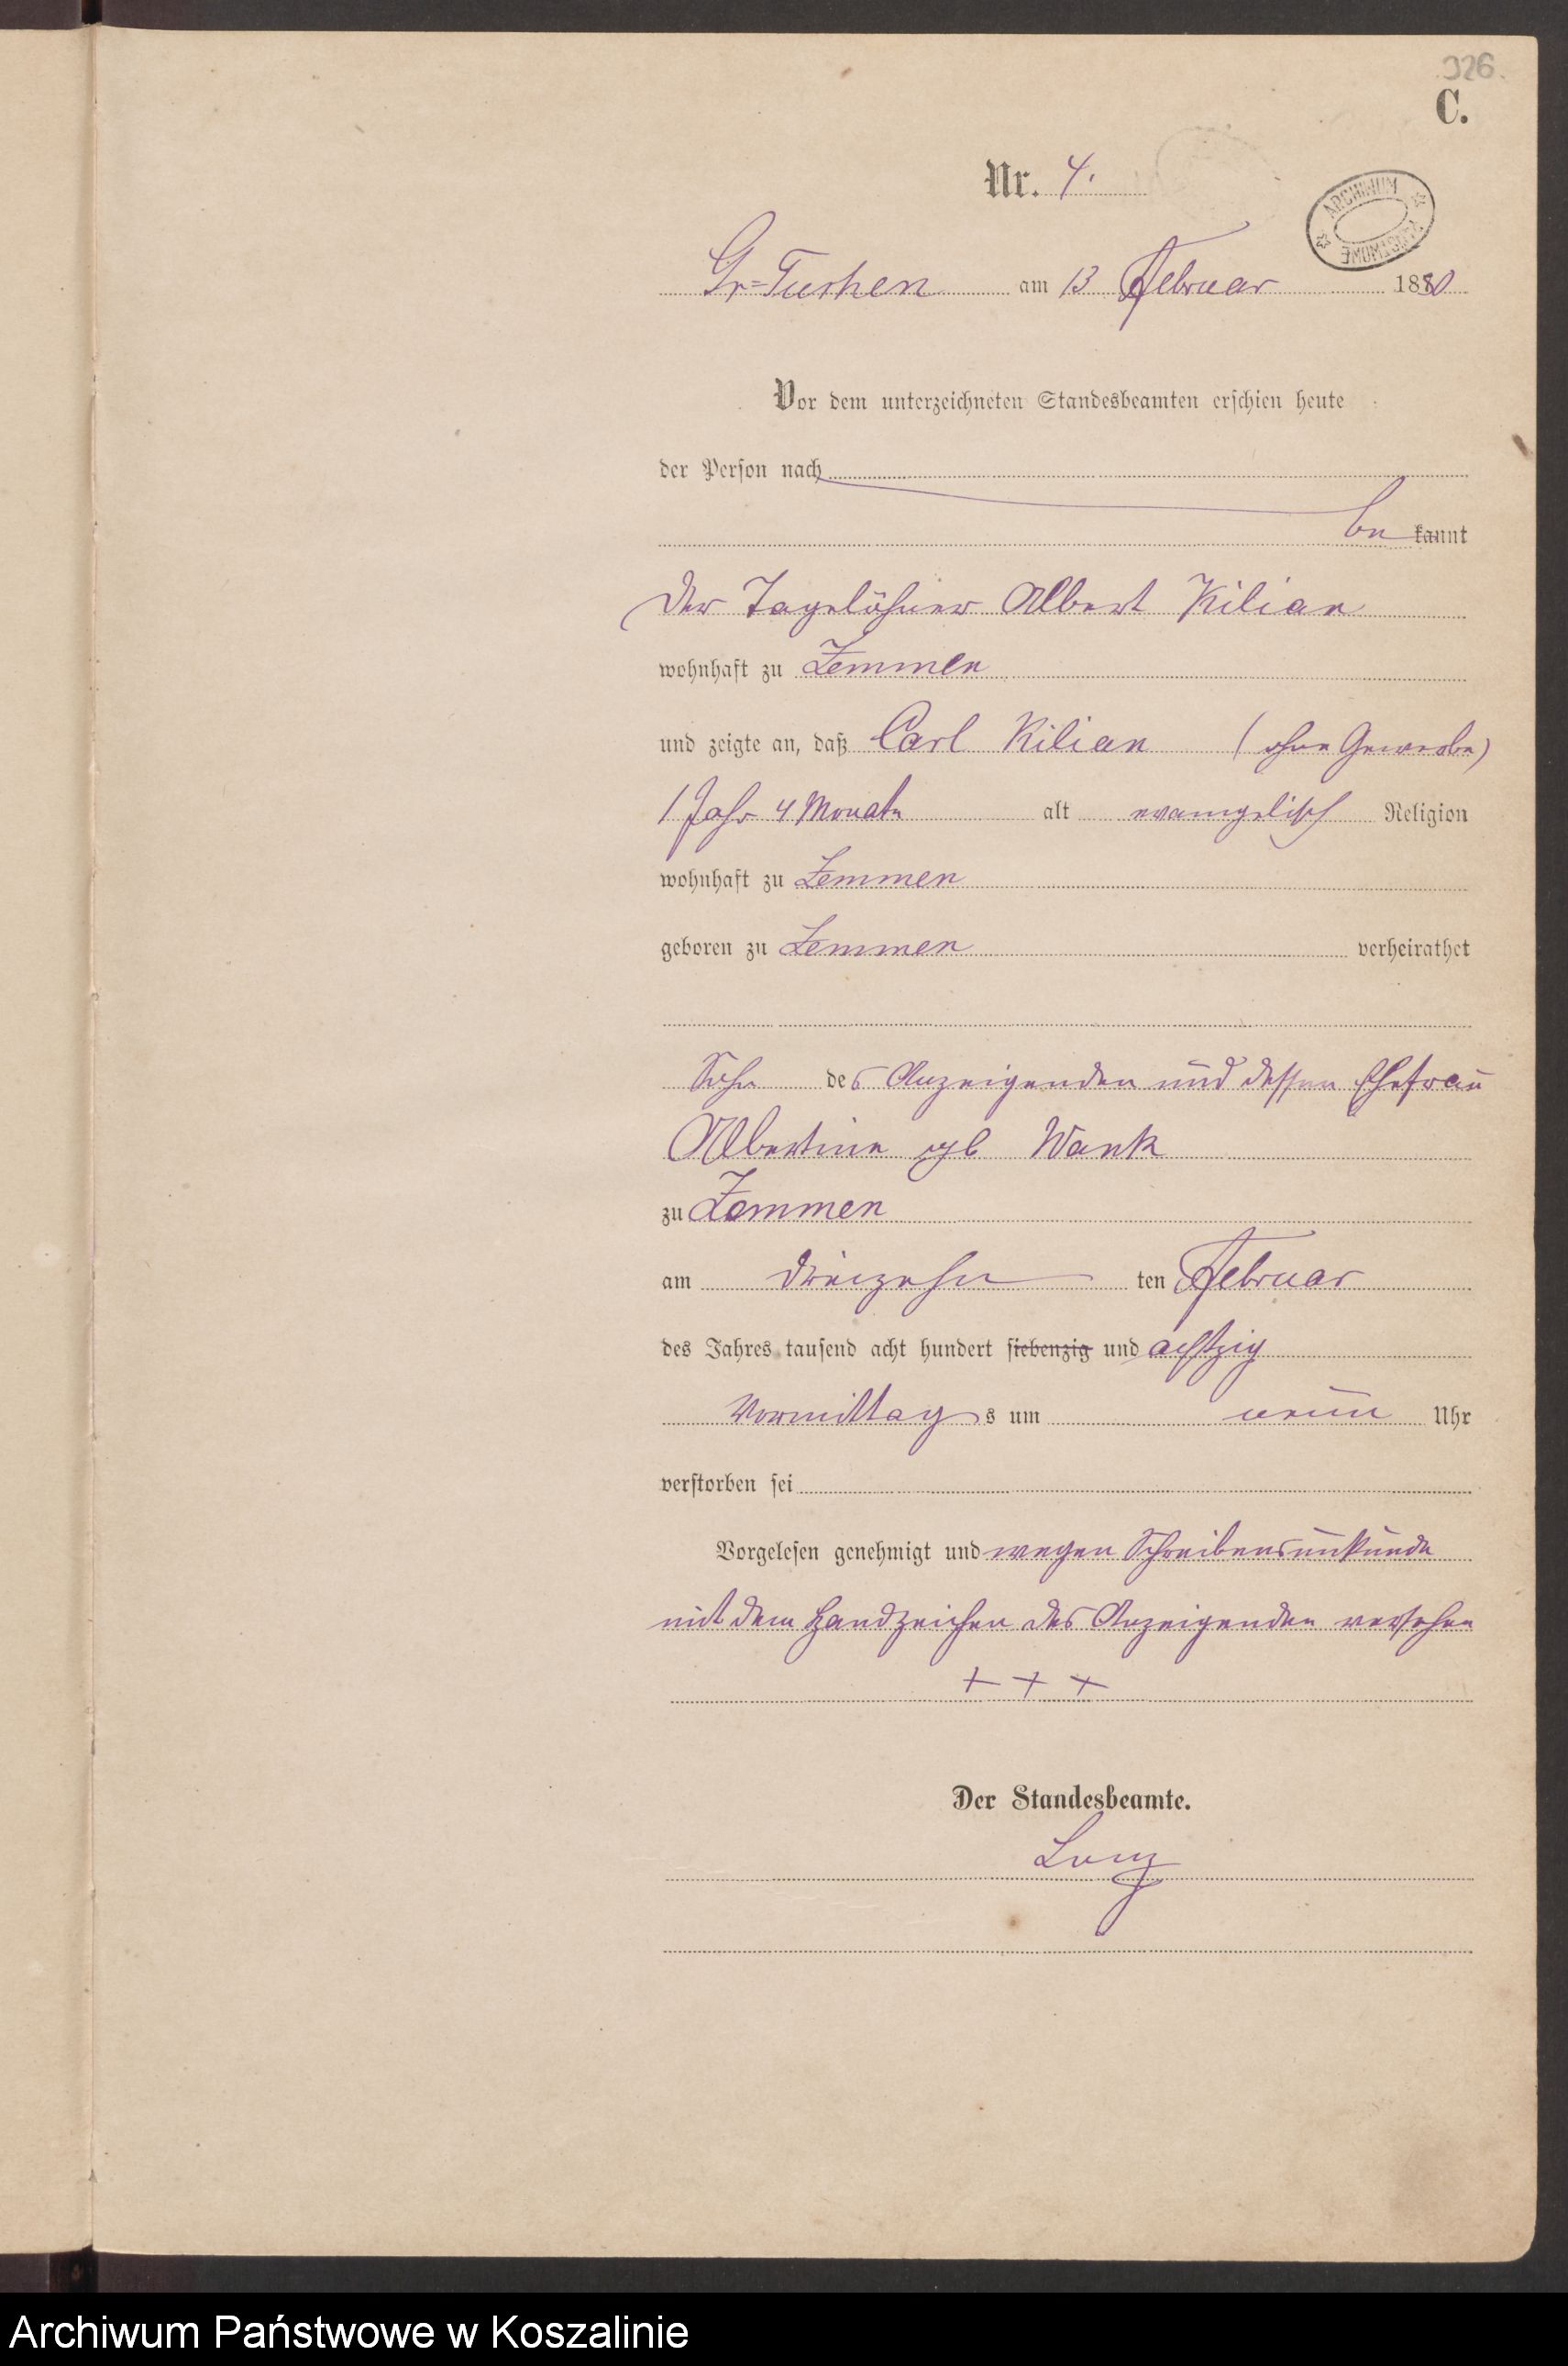 926.
C.
Nr. 4.
ARCHIWUM PAŃSTWOWE
Gr=Tuchen am 13 Februar 1880
Vor dem unterzeichneten Standesbeamten erschien heute
der Person nach
be kannt
der Tagelöhner Albert Kilian
wohnhaft zu Zemmen
und zeigte an, daß Carl Kilian (ohne Gewerbe)
1 Jahr 4 Monate alt evangelisch Religion
wohnhaft zu Zemmen
geboren zu Zemmen verheirathet
Sohn des Anzeigenden und dessen Ehefrau
Albertine geb Wank
zu Zemmen
am dreizehn ten Februar
des Jahres tausend acht hundert siebenzig und achtzig
Vormittags um neun Uhr
verstorben sei
Vorgelesen genehmigt und wegen Schreibensunkunde
mit dem Handzeichen des Anzeigenden versehen
+ + +
Der Standesbeamte.
Archiwum Państwowe w Koszalinie